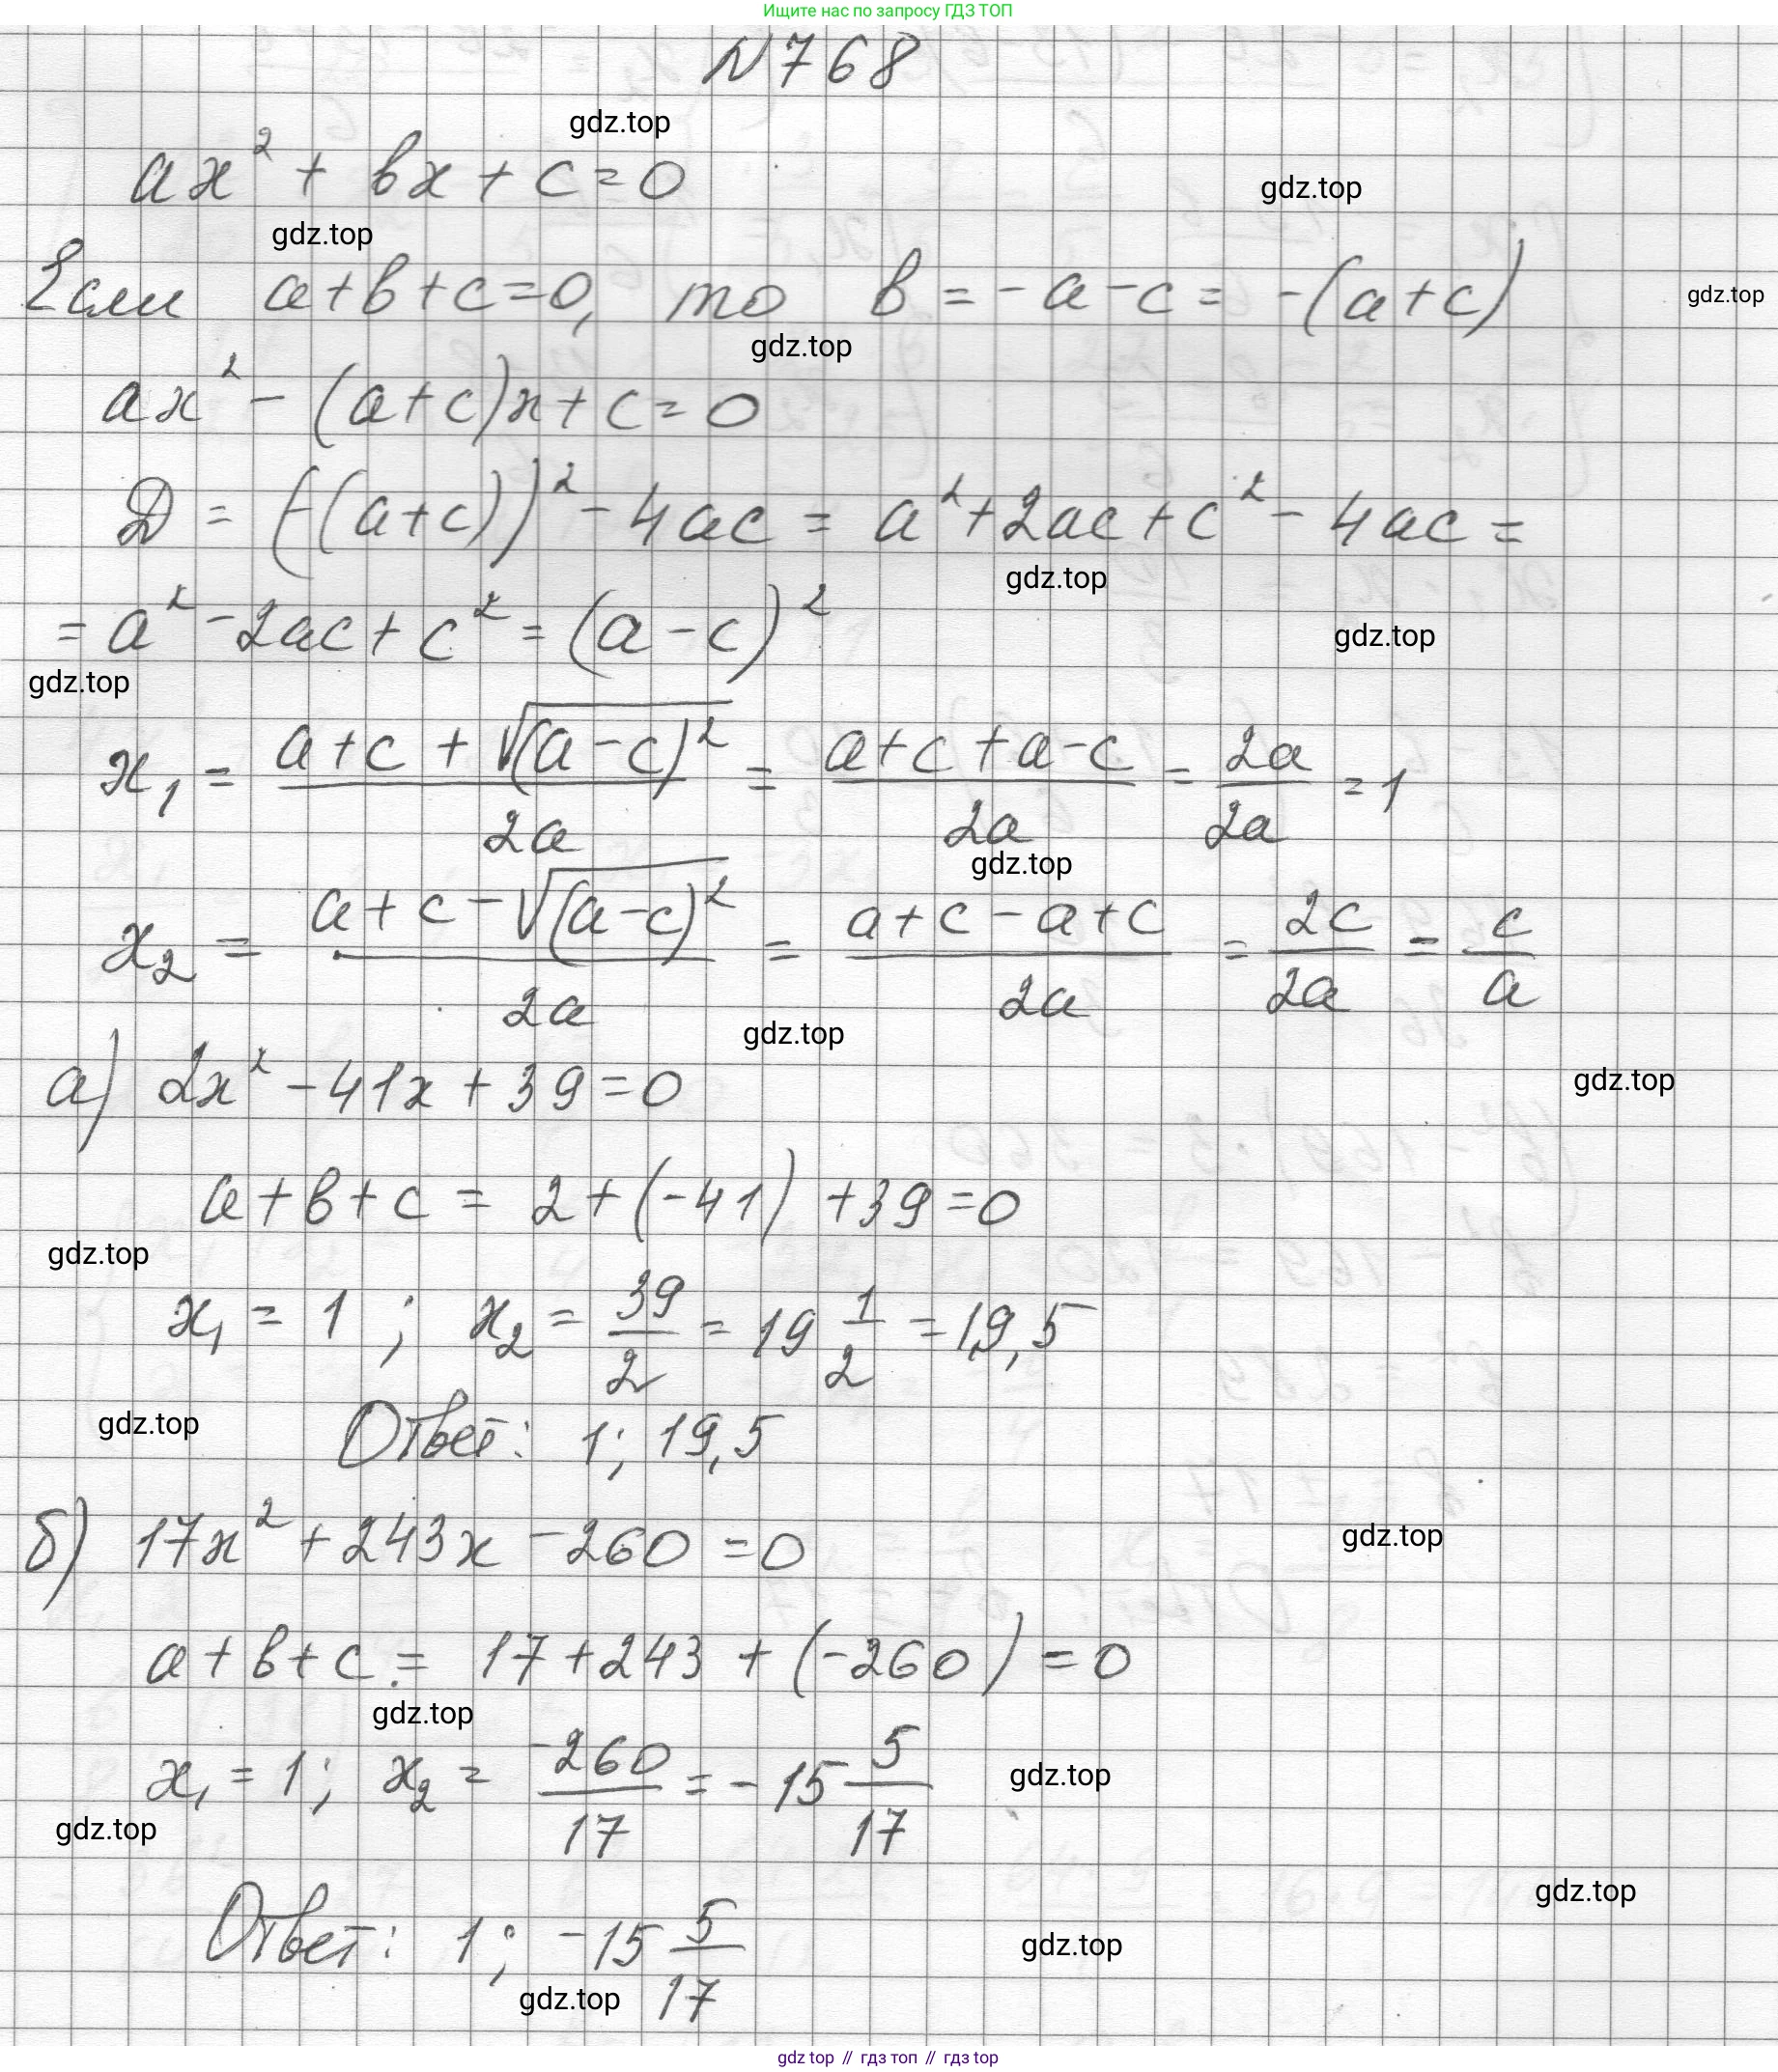 Ищите нас по запросу ГДЗ ТОП
N 768
gdz.top
ax² + bx + c = 0
gdz.top
gdz.top
Если a+b+c=0, то b = -a-c = -(a+c)
gdz.top
gdz.top
ax² - (a+c)x + c = 0
D = (-(a+c))² - 4ac = a² + 2ac + c² - 4ac =
gdz.top
= a² - 2ac + c² = (a-c)²
gdz.top
gdz.top
x₁ = (a+c+√(a-c)²)/2a = (a+c+a-c)/2a = 2a/2a = 1
gdz.top
x₂ = (a+c-√(a-c)²)/2a = (a+c-a+c)/2a = 2c/2a = c/a
gdz.top
а) 2x² - 41x + 39 = 0
gdz.top
a+b+c = 2+(-41)+39=0
gdz.top
x₁ = 1; x₂ = 39/2 = 19 1/2 = 19,5
gdz.top
Ответ: 1; 19,5
б) 17x² + 243x - 260 = 0
gdz.top
a+b+c = 17+243+(-260)=0
gdz.top
x₁ = 1; x₂ = -260/17 = -15 5/17
gdz.top
gdz.top
gdz.top
Ответ: 1; -15 5/17
gdz.top
gdz.top
gdz top // гдз топ // гдз top